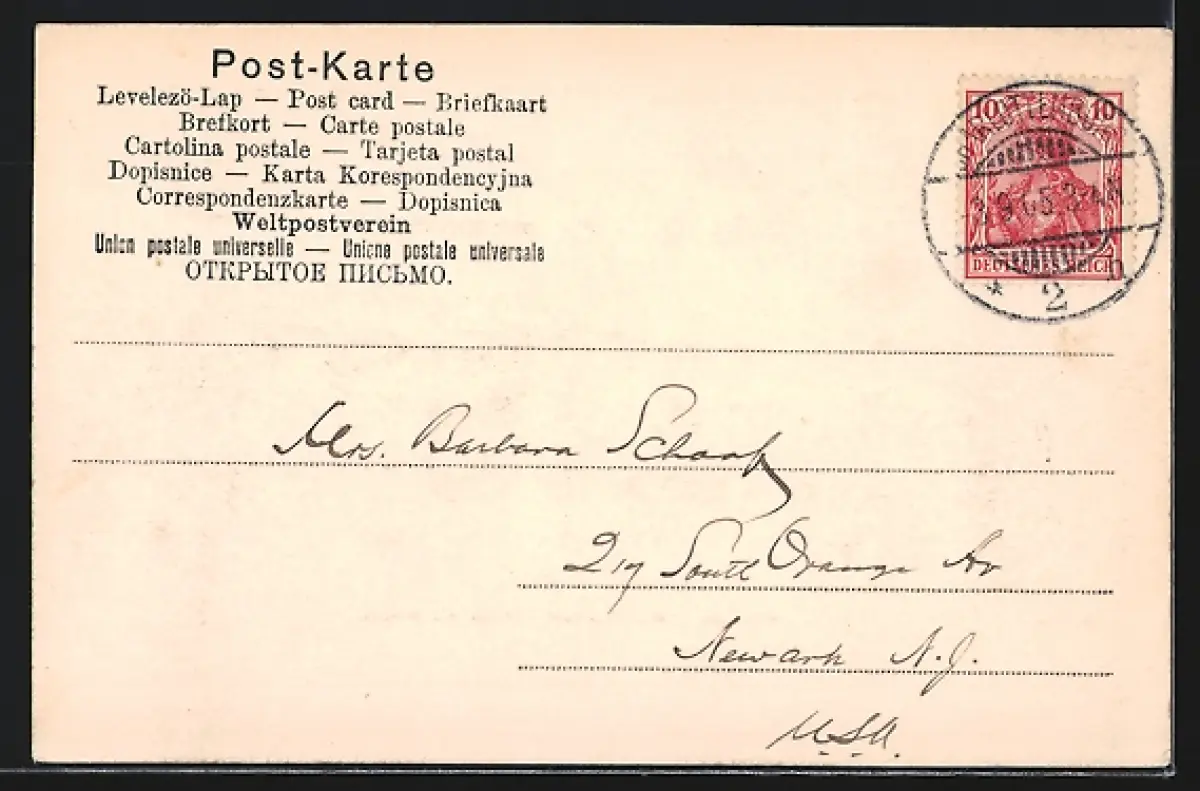 Post-Karte
Levelezö-Lap — Post card — Briefkaart
Brefkort — Carte postale
Cartolina postale — Tarjeta postal
Dopisnice — Karta Korespondencyjna
Correspondenzkarte — Dopisnica
Weltpostverein
Union postale universelle — Unione postale universale
ОТКРЫТОЕ ПИСЬМО.
10 10
DEUTSCHES REICH
* 2
Mrs. Barbara Schaaf
217 South Orange Av
Newark N.J.
USA.